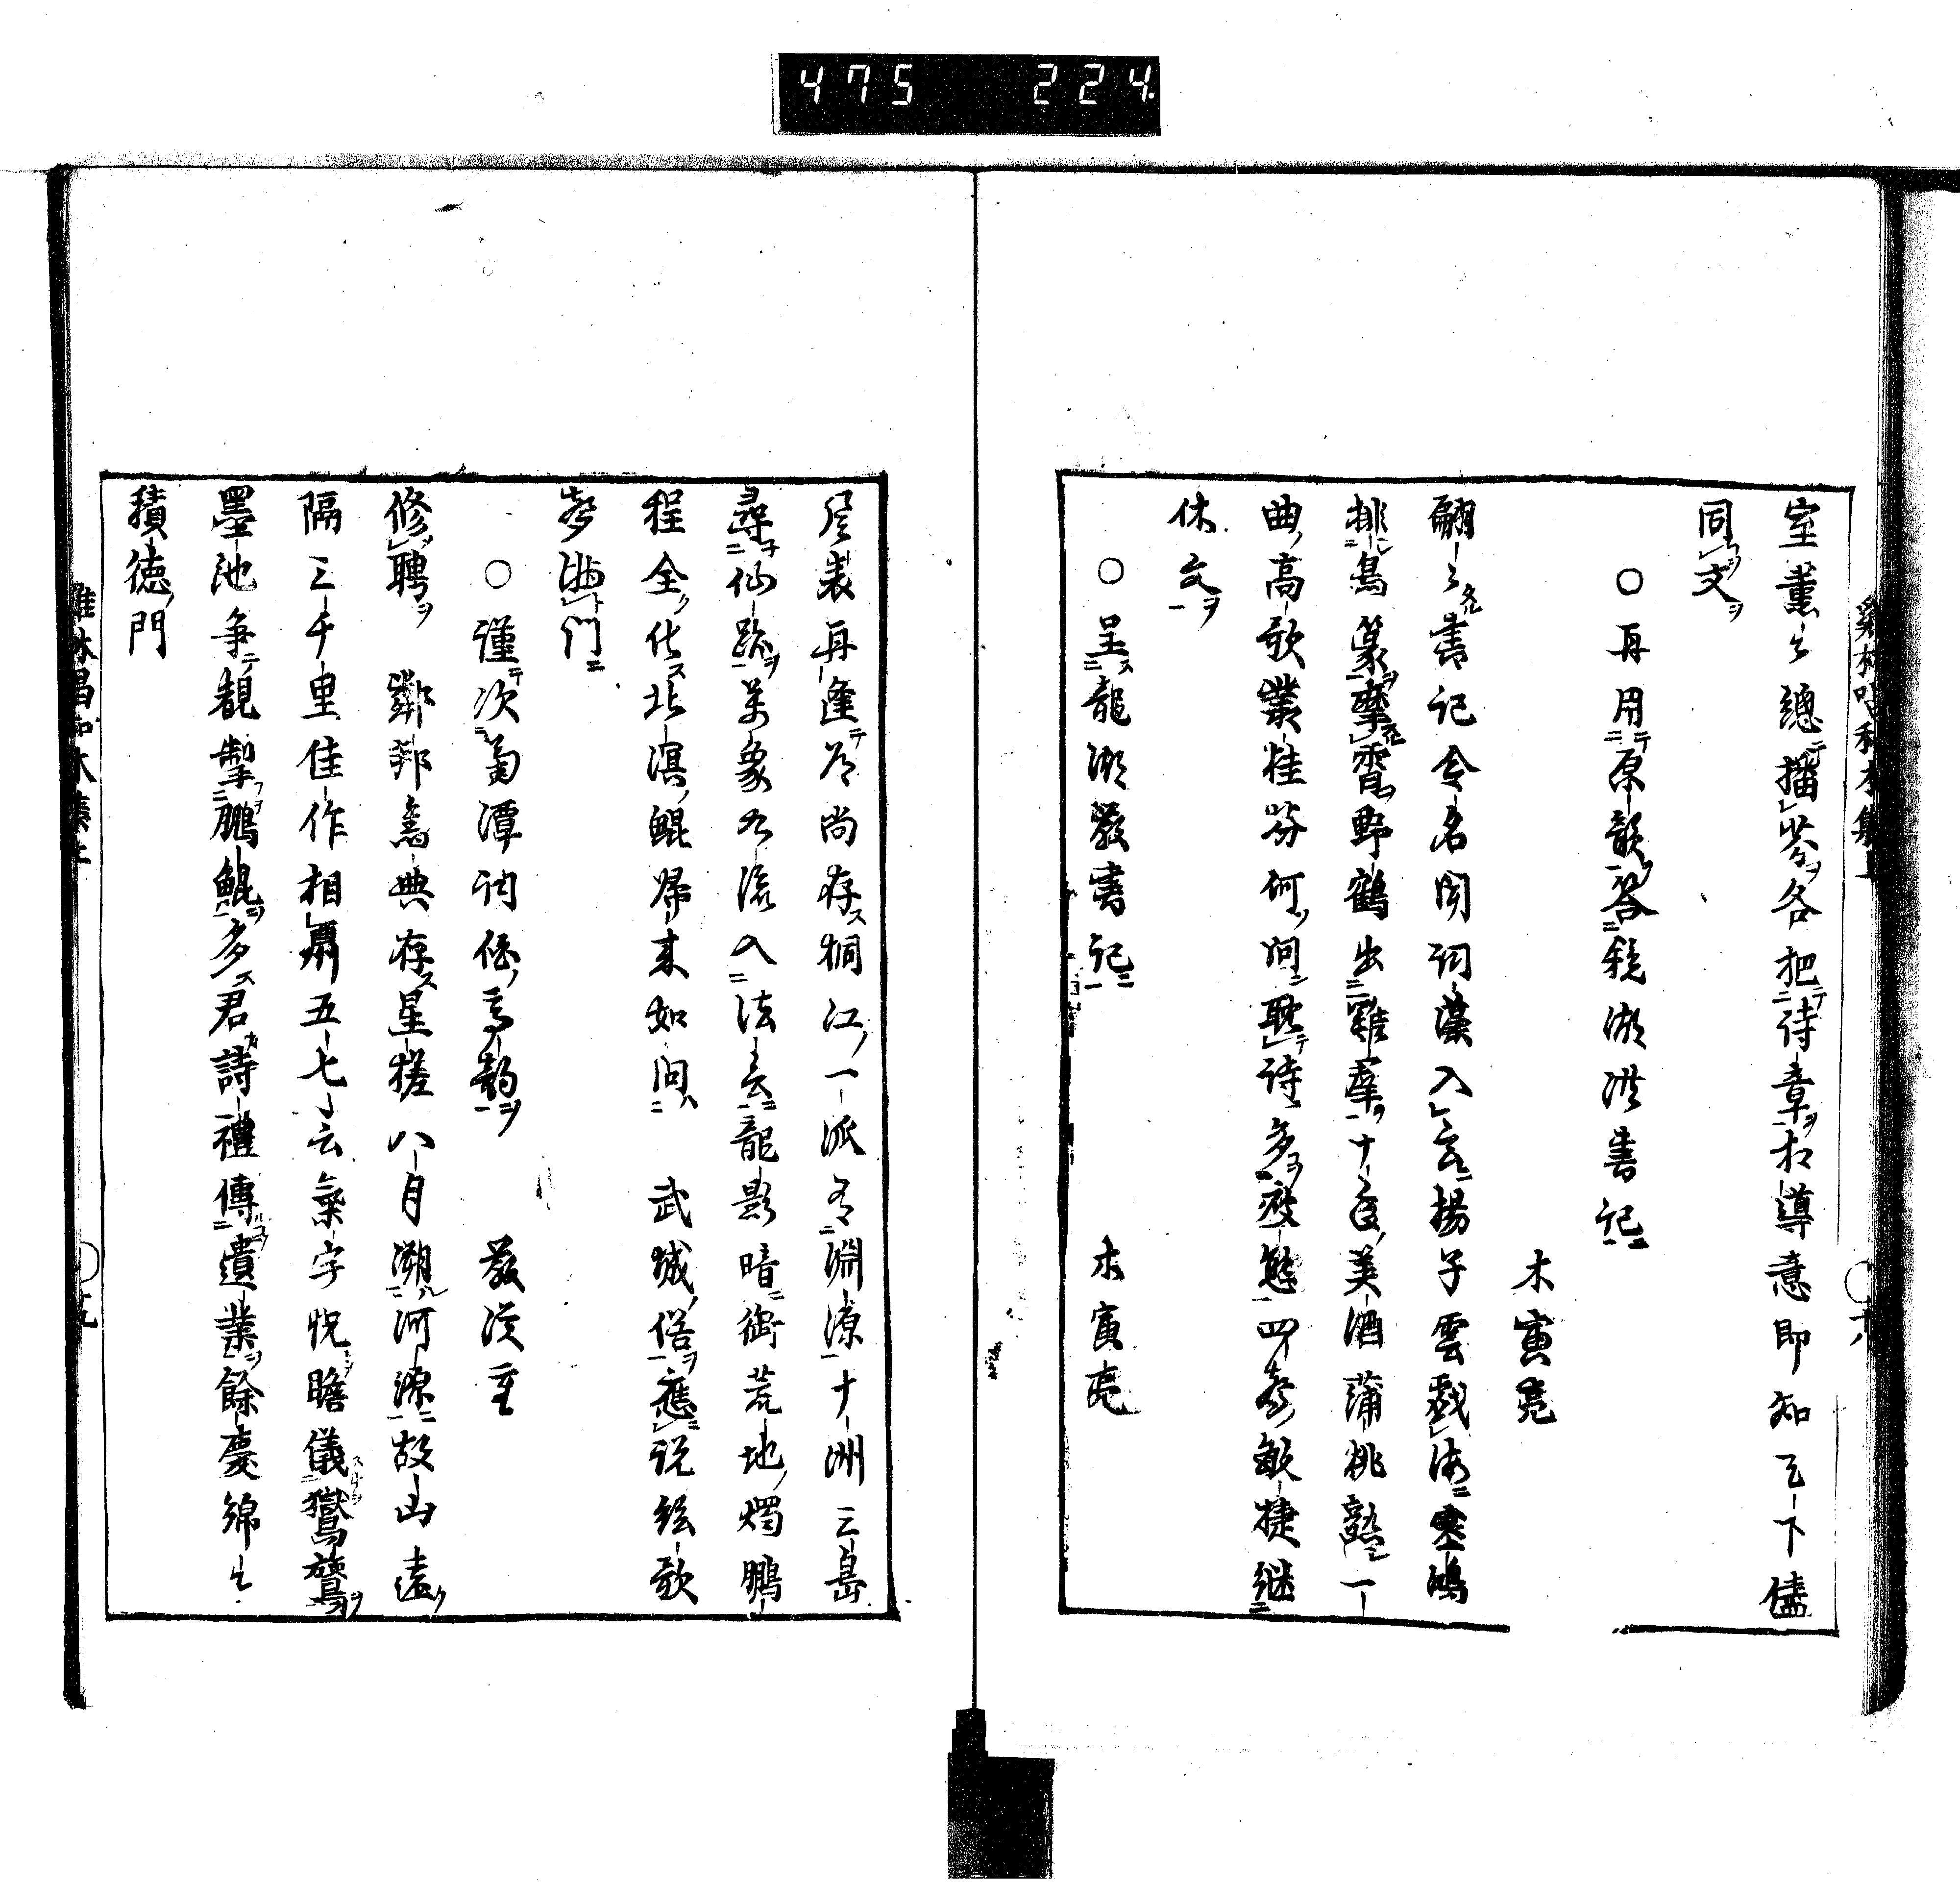 475 224
室薫々總播芬各把詩章相導意即知天下儘
同文
○再用原韻答鏡湖洪書記
木寅亮
翩々書記令名聞詞藻入玄揚子雲戯海塞鴻
排鳥篆摩霄野鶴出雞羣十年美酒蒲桃熟一
曲高歌叢桂芬何問耽詩多疲態四
敏捷継
休文
○呈龍湖嚴書記
木寅亮
製再逢
尚存桐江一派
淵源十洲三島
尋仙跡萬象九流入法言龍影暗銜荒地燭鵬
程全化北溟鯤帰来如問
武城俗應説絃歌
門
○謹次菊潭詞伯高韵
嚴漢重
修聘
鄰邦舊典存星槎八月溯河源故山遠
隔三千里佳作相酬五七言氣宇怳瞻儀鸑鷟
墨池争覩掣鵬鯤多君詩禮傳遺業餘慶綿々
積徳門